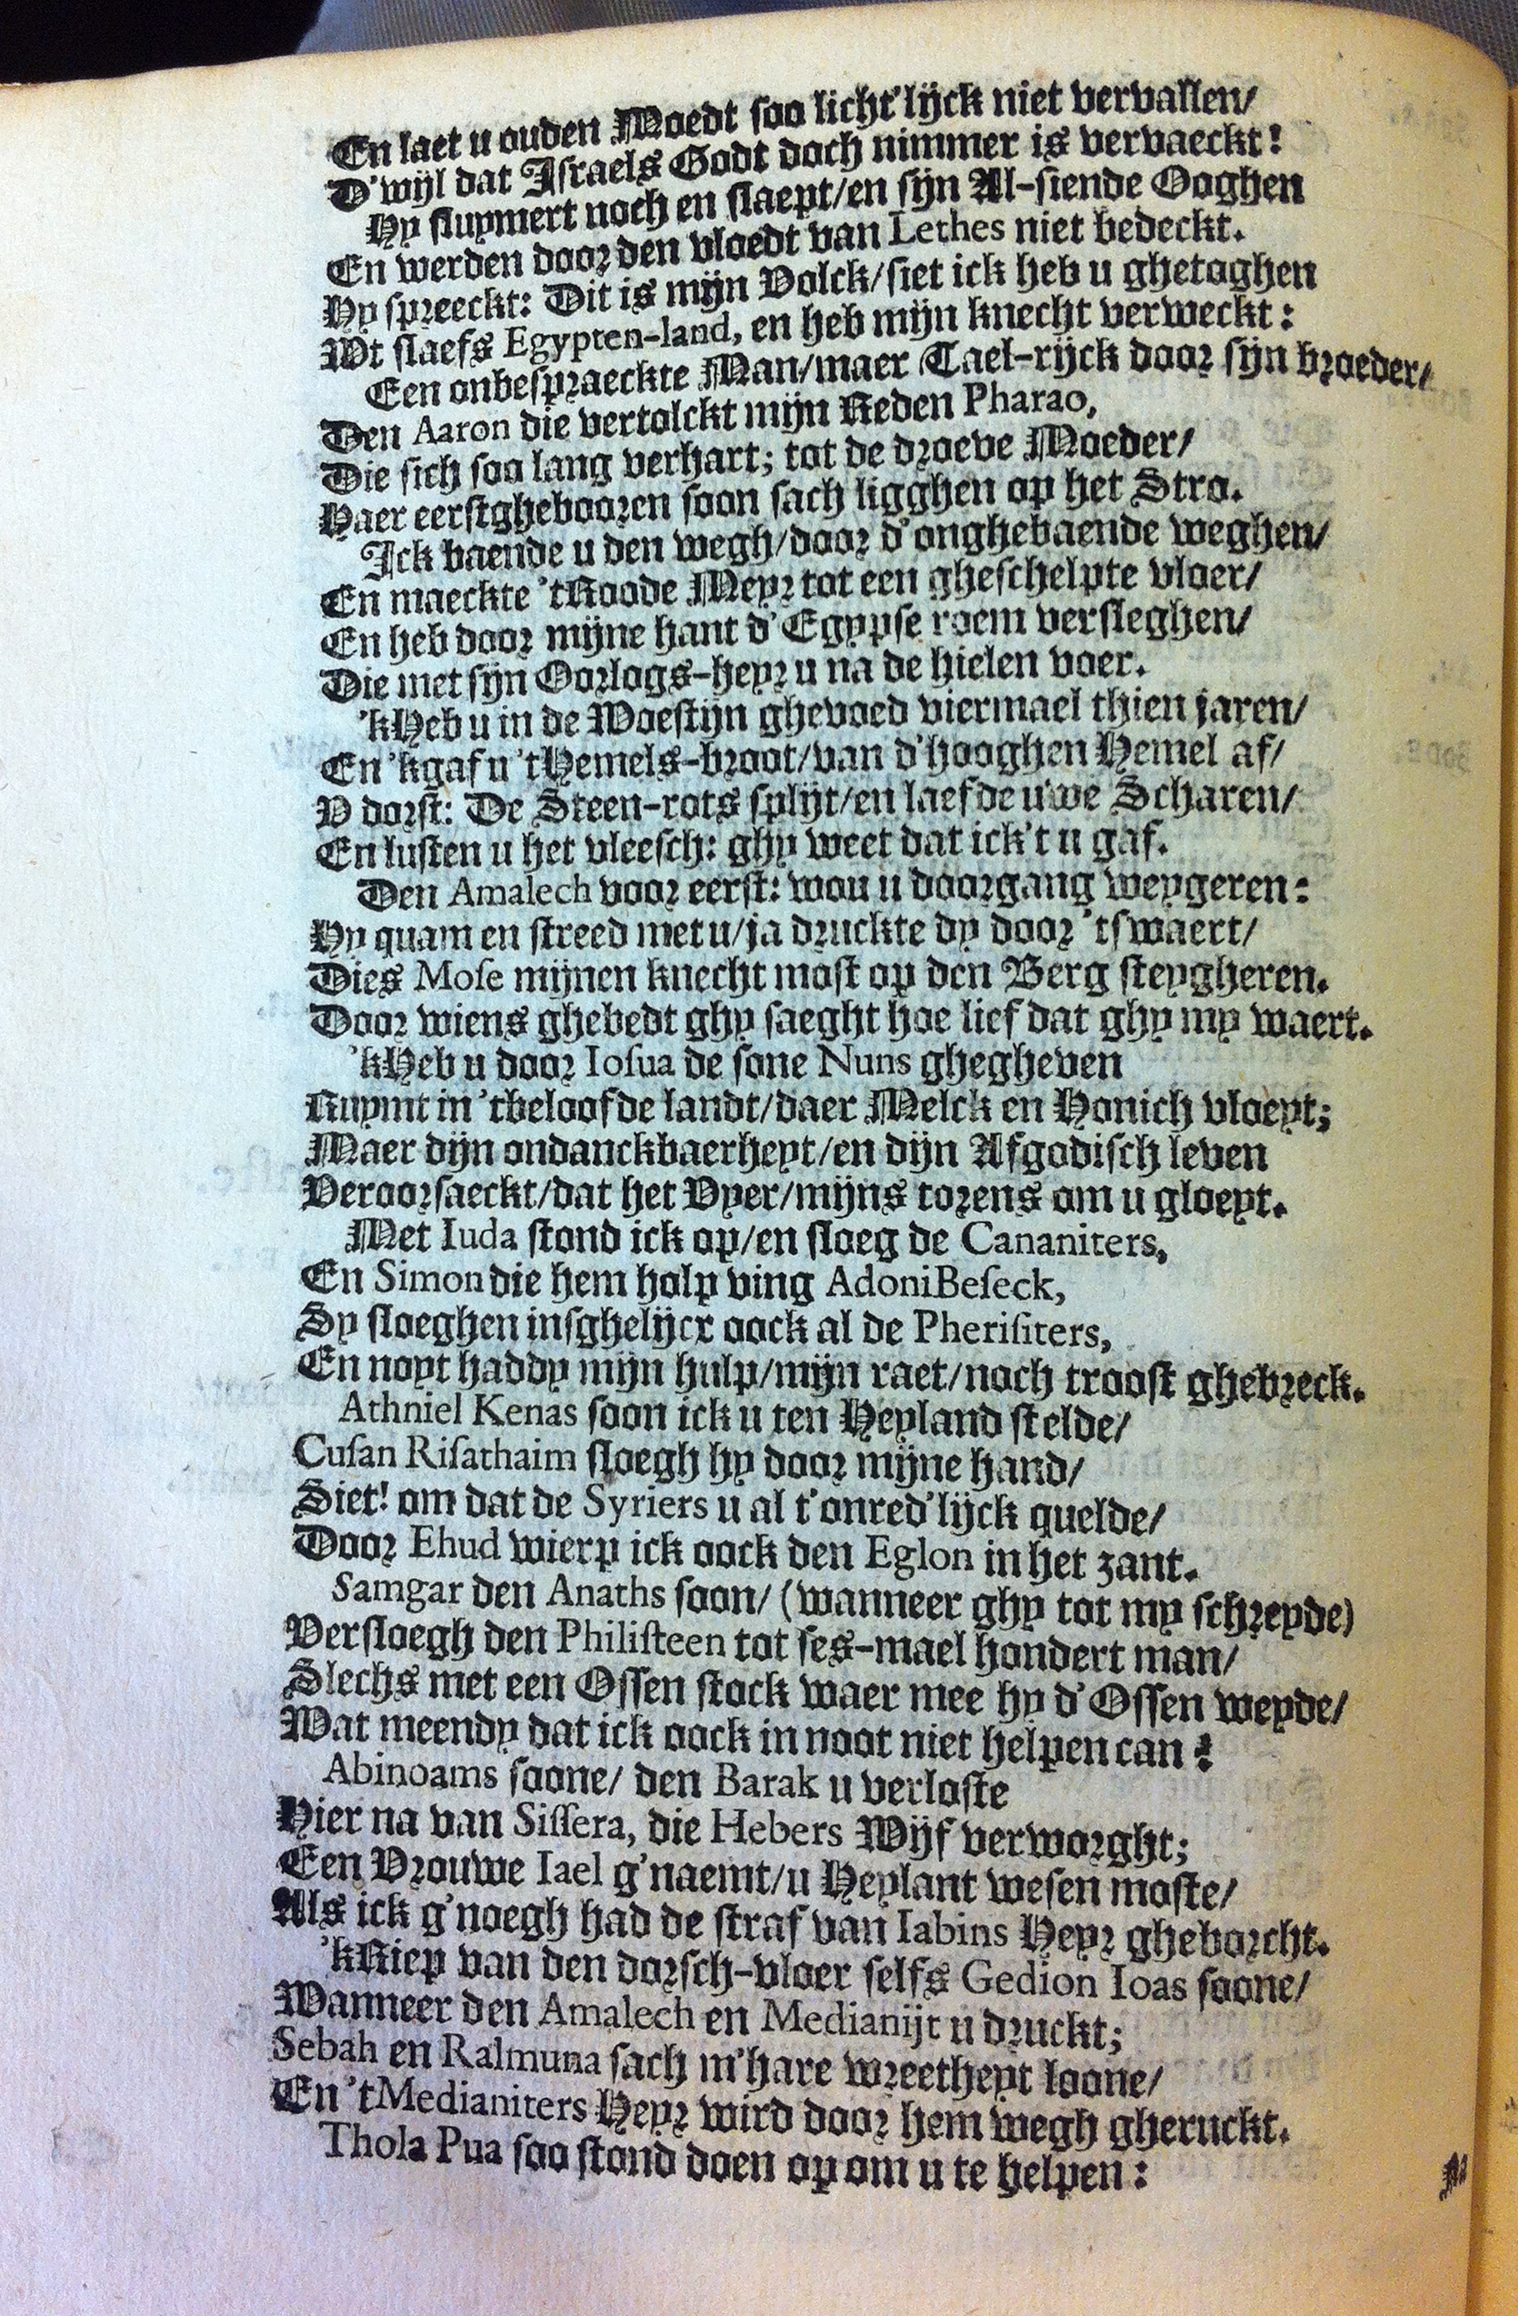 En laet u ouden Moedt soo licht'lijck niet vervallen/
D'wijl dat Israels Godt doch nimmer is vervaeckt!
Hy sluymert noch en slaept/en sijn Al-siende Ooghen
En werden door den vloedt van Lethes niet bedeckt.
Hy spreeckt: Dit is mijn Volck/siet ick heb u ghetoghen
Wt slaefs Egypten-land, en heb mijn knecht verweckt:
Een onbespraeckte Man/maer Tael-rijck door sijn broeder/
Den Aaron die vertolckt mijn Reden Pharao,
Die sich soo lang verhart; tot de droeve Moeder/
Haer eerstghebooren soon sach ligghen op het Stro.
Ick baende u den wegh/door d'onghebaende weghen/
En maeckte 'tRoode Meyr tot een gheschelpte vloer/
En heb door mijne hant d'Egypse roem versleghen/
Die met sijn Oorlogs-heyr u na de hielen voer.
'kHeb u in de Woestijn ghevoed viermael thien jaren/
En 'kgaf u 'tHemels-broot/van d'hooghen Hemel af/
V dorst: De Steen-rots splijt/en laefde uwe Scharen/
En lusten u het vleesch: ghy weet dat ick't u gaf.
Den Amalech voor eerst: wou u doorgang weygeren:
Hy quam en streed met u/ja druckte dy door 'tswaert/
Dies Mose mijnen knecht most op den Berg steygheren.
Door wiens ghebedt ghy saeght hoe lief dat ghy my waert.
'kHeb u door Iosua de sone Nuns ghegheven
Ruymt in 'tbeloofde landt/daer Melck en Honich vloeyt;
Maer dijn ondanckbaerheyt/en dijn Afgodisch leven
Veroorsaeckt/dat het Vyer/mijns torens om u gloeyt.
Met Iuda stond ick op/en sloeg de Cananiters,
En Simon die hem holp ving AdoniBeseck,
Sy sloeghen insghelijcx oock al de Pherisiters,
En noyt haddy mijn hulp/mijn raet/noch troost ghebreck.
Athniel Kenas soon ick u ten Heyland stelde/
Cusan Risathaim sloegh hy door mijne hand/
Siet! om dat de Syriers u al t'onred'lijck quelde/
Door Ehud wierp ick oock den Eglon in het zant.
Samgar den Anaths soon/ (wanneer ghy tot my schreyde)
Versloegh den Philisteen tot ses-mael hondert man/
Slechs met een Ossen stock waer mee hy d'Ossen weyde/
Wat meendy dat ick oock in noot niet helpen can?
Abinoams soone/ den Barak u verloste
Hier na van Sissera, die Hebers Wijf verworght;
Een Vrouwe Iael g'naemt/u Heylant wesen moste/
Als ick g'noegh had de straf van Iabins Heyr gheborcht.
'kRiep van den dorsch-vloer selfs Gedion Ioas soone/
Wanneer den Amalech en Medianijt u druckt;
Sebah en Ralmuna sach m'hare wreetheyt loone/
En 'tMedianiters Heyr wird door hem wegh gheruckt.
Thola Pua soo stond doen op om u te helpen: